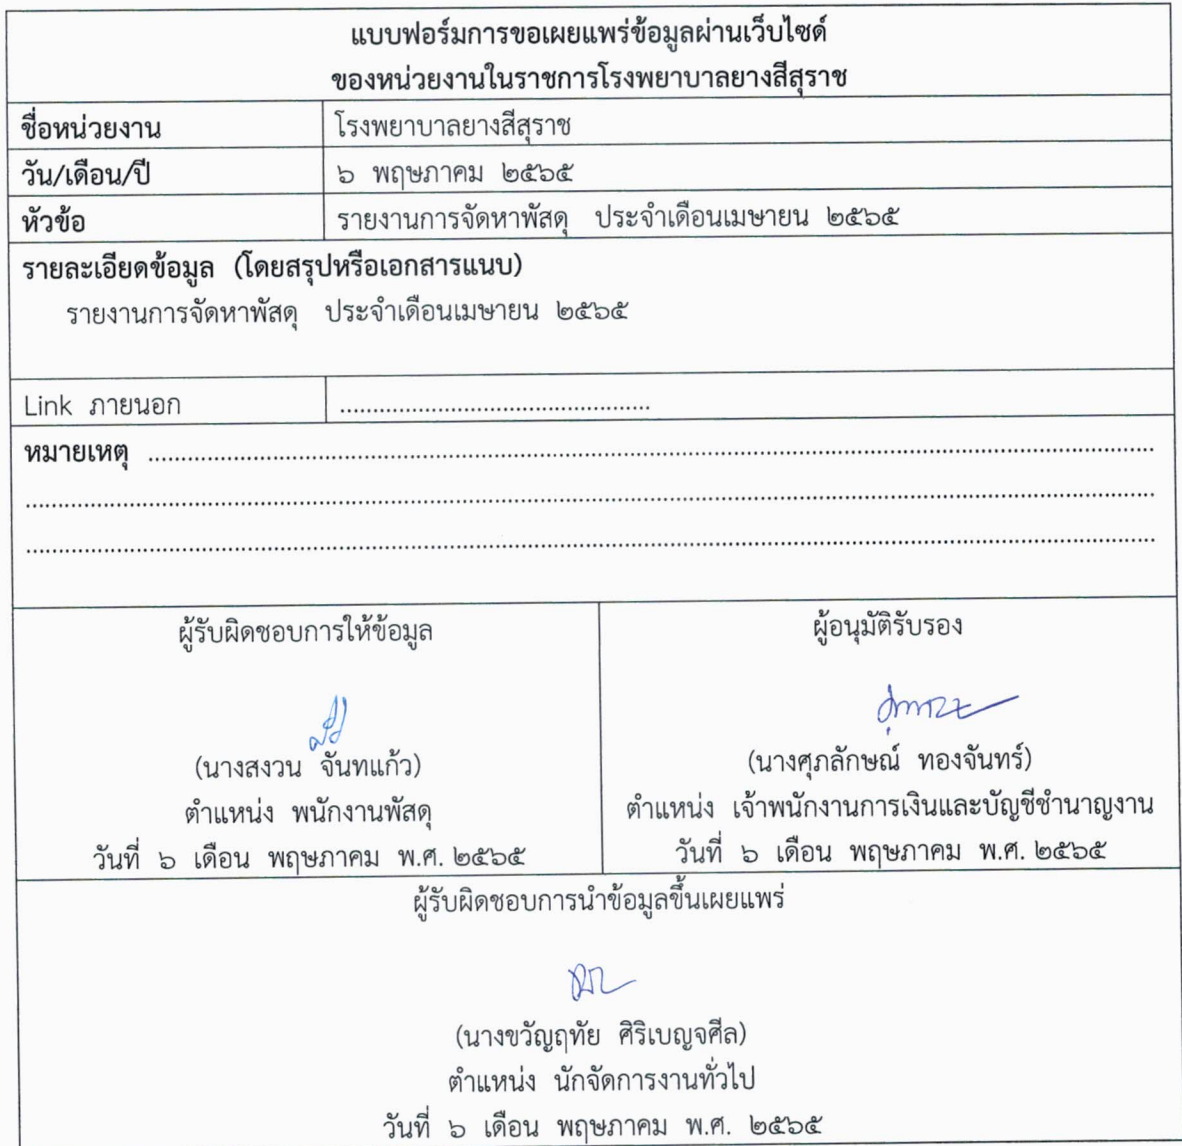 แบบฟอร์มการขอเผยแพร่ข้อมูลผ่านเว็บไซด์
ของหน่วยงานในราชการโรงพยาบาลยางสีสุราช
ชื่อหน่วยงาน โรงพยาบาลยางสีสุราช
วัน/เดือน/ปี ๖ พฤษภาคม ๒๕๖๕
หัวข้อ รายงานการจัดหาพัสดุ ประจำเดือนเมษายน ๒๕๖๕
รายละเอียดข้อมูล (โดยสรุปหรือเอกสารแนบ)
รายงานการจัดหาพัสดุ ประจำเดือนเมษายน ๒๕๖๕
Link ภายนอก ................................................
หมายเหตุ ................................................
................................................
................................................
ผู้รับผิดชอบการให้ข้อมูล
(นางสงวน จันทแก้ว)
ตำแหน่ง พนักงานพัสดุ
วันที่ ๖ เดือน พฤษภาคม พ.ศ. ๒๕๖๕
ผู้อนุมัติรับรอง
(นางศุภลักษณ์ ทองจันทร์)
ตำแหน่ง เจ้าพนักงานการเงินและบัญชีชำนาญงาน
วันที่ ๖ เดือน พฤษภาคม พ.ศ. ๒๕๖๕
ผู้รับผิดชอบการนำข้อมูลขึ้นเผยแพร่
(นางขวัญฤทัย ศิริเบญจศีล)
ตำแหน่ง นักจัดการงานทั่วไป
วันที่ ๖ เดือน พฤษภาคม พ.ศ. ๒๕๖๕